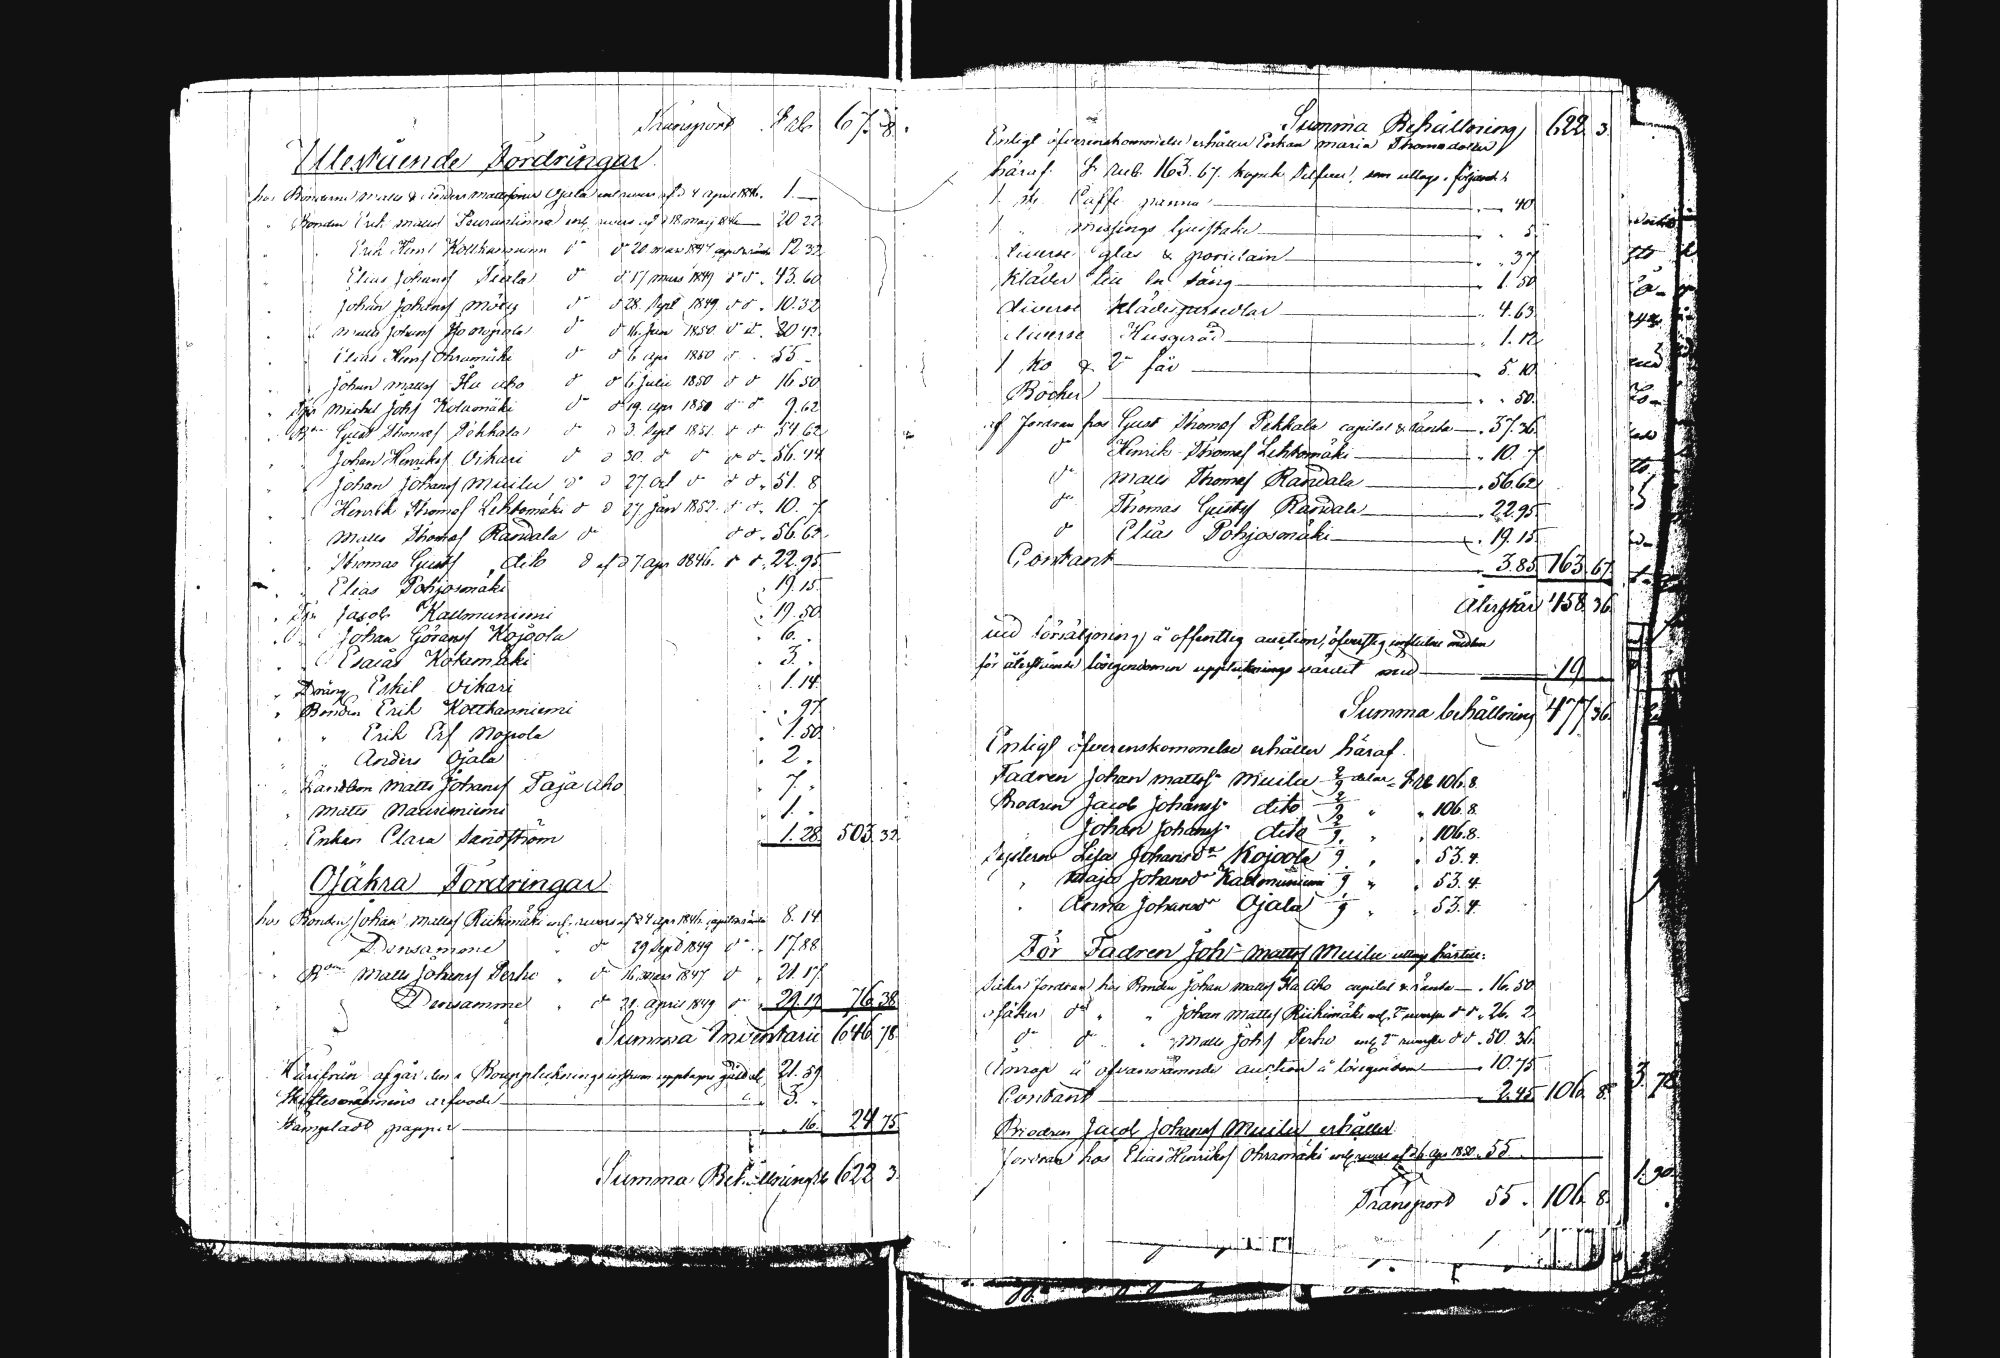 Transport S rub 67. 8.
Utestående Fordringar
hos Bönderne Matts & Anders Mattssöner Ojala enl revers af d 4 april 1846. 1. —
" Bonden Erik Matts Peuraniinna enl. revers af d 18 maij 1846 — 20 22
" " Erik Henr Kottkanniemi do d 20 mars 1847 capital & ränta 12 32
" " Elias Johansf do d 17 mars 1849 do do . 43. 60
" " Johan Johansf Möry do d 28. Sept 1849 do do . 10. 32
" " Matts Johansf do d 16. Jan 1850 do do . 20 42
" " Elias Henrsf Ohramäki do d 6 apr 1850 do . 55 —
" " Johan Mattsf Ka aho do d 6 Julii 1850 do do 16. 50
" Michel Johsf Kolamäki do d 19. apr 1850 do do 9. 62
" Bdn Gust Thomsf Pekkala do d 3. Sept 1851. do do . 54 62
" " Johan Henriksf Vikari do d 30. do do do do . 56. 44
" " Johan Johansf Muilu do d 27. oct do do do . 51. 8
" " Henrik Thomsf Lehtomäki do d 27. Jan 1852. do do . 10. 7
" " Matts Thomsf Randala do do do . 56. 62
" " Thomas Gustsf dito d af d 7 apr 1846. do do . 22. 95
" " Elias Pohjosmäki 19. 15
" Jacob Kallmuniemi 19. 50
" " Johan Göransf Kojoola " 6. "
" " Esaias Kotamäki " 3. "
" Dräng Eskil Vikari " 1. 14
" Bonden Erik Kottkanniemi " . 97
" " Erik Erf Nopola " 1. 50
" " Anders Ojala " 2 "
" Landbon Matts Johansf Paja aho " 7. "
" Matts Nauriniemi " 1. "
" Enkan Clara Sandström 1. 28 503. 32
Osäkra Fordringar
hos Bonden Johan Mattsf Riihimäki enl. revers af d 4 apr 1846. capital & ränta 8. 14
" Densamme " do 29 Sept 1849 do " . 17. 88
" Bdn Matts Johansf Perho " do 16. mars 1847 do " 21. 17
" Densamme " do 21. april 1849 do . 29. 19 76. 38
Summa Inventarii 646. 78
Härifrån afgår den i Bouppteckningsinstrum upptagne gäld 21. 59
Skiftesmannens arfvode — 3. "
Stämpladt papper — " 16. 24 75
Summa Behållning 622 3.
Summa Behållning 622 3.
Enligt öfverenskommelse erhåller Enkan Maria Thomsdotter
häraf. S Rub. 163. 67. kopek Silfver, som uttages följande:
1 st. Caffe panna — . . 40
1 " messings ljusstake — . . 5
diverse glas & porcelain — . . 37
Kläder till en säng — . 1. 50
diverse klädespersedlar — . 4. 63
diverse Husgeråd — . 1. 12
1 ko & 2 får — . 5. 10
Böcker — . . 50.
af Fordran hos Gust Thomsf Pekkala capital & ränta — . 37. 36
do Henrik Thomsf Lehtomäki — . 10. 7
do Matts Thomsf Randala — . 56. 62
do Thomas Gustsf Randala — . 22. 95
do Elias Pohjosmäki — . 19. 15
Contant — 3. 85 163. 67.
Återstår 458. 36
vid Försäljning å offentlig auction,
för återstående lösegendomen uppteknings värdet med — 19
Summa behållning 477. 36.
Enligt öfverenskommelse erhåller häraf.
Fadren Johan Mattsf Muilu 2/9 delar = S Rb 106. 8.
Brodren Jacob Johansf dito 2/9 " " 106. 8
" Johan Johansf dito 2/9. " " 106. 8.
Systern Lisa Johansdr Kojoola 1/9 " " 53. 4.
" Maja Johansdr Kallmuniemi 1/9 " " 53. 4
" Anna Johansdr Ojala 1/9 " " 53. 4
För Fadren Joh. Mattsf Muilu uttages härtill:
Säker Fordran hos Bonden Johan Mattsf Ka aho capital & ränta — . 16. 50
osäker do " " Johan Mattsf Riihimäki enl. 2 reverser do do . 26. 2
do do " Matts Johsf Perho enl. 2 reverser do do . 50. 36
Inrop å ofvannämnde auction å lösegendom — 10. 75
Contant — 2. 45 106. 8
Brodren Jacob Johansf Muilu erhåller
Fordran hos Elias Henriksf Ohramäki enl. revers af d 6 apr 1850 . 55 —
Transport 55 . 106. 8.
3. 78
1. 90.